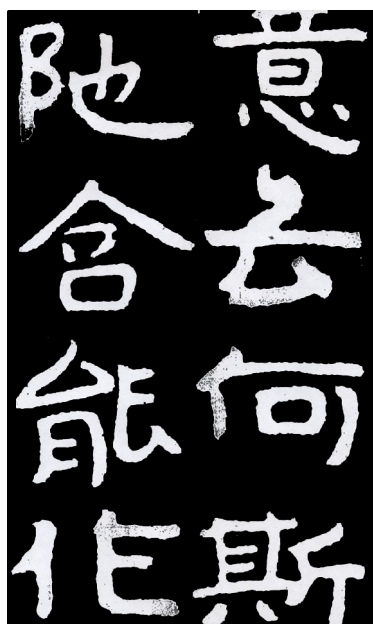 意云何斯
阤含能作